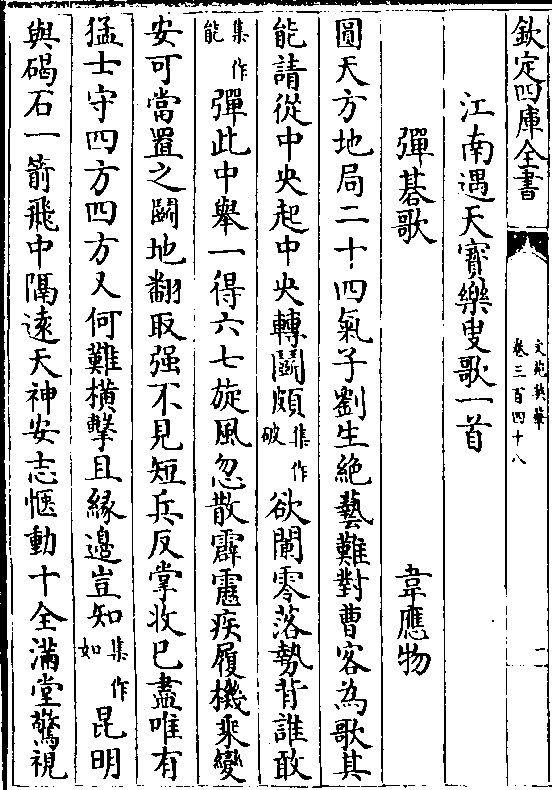 欽定四庫全書
文苑英華
卷三百四十八
二
江南遇天寳樂叟歌一首
彈棊歌 韋應物
圓天方地局二十四氣子劉生絶藝難對曹客為歌其
能請從中央起中央轉鬭頗集作破欲闌零落勢背誰敢
集作能彈此中舉一得六七旋風忽散霹靂疾履機乘變
安可當置之鬬地翻取强不見短兵反掌收已盡唯有
猛士守四方四方又何難横擊且縁邉豈知集作如昆明
與碣石一箭飛中隔逺天神安志惬動十全滿堂驚視